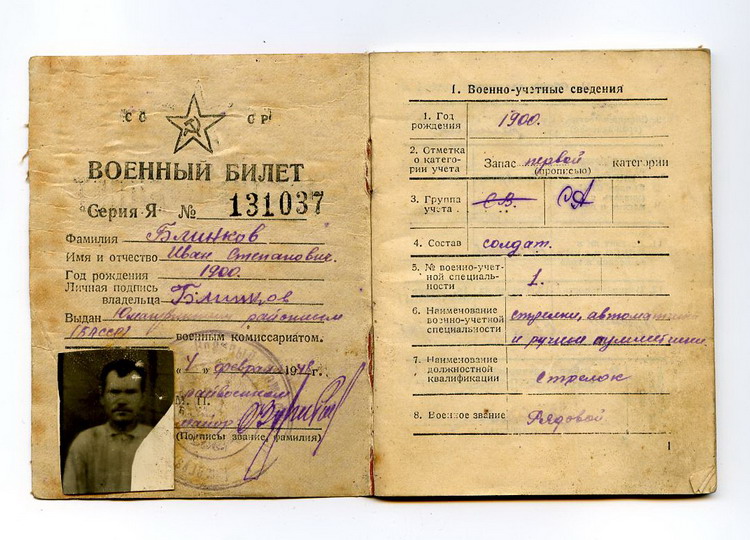 СС СР
ВОЕННЫЙ БИЛЕТ
Серия Я № 131037
Фамилия Блинков
Имя и отчество Иван Степанович.
Год рождения 1900.
Личная подпись
владельца Блинков
Выдан районным
(БАССР) военным комиссариатом.
" " февраля 194 г.
М.
майор
(Подпись, звание, фамилия)
1. Военно-учетные сведения
1. Год
рождения 1900.
2. Отметка
о катего-
рии учета Запас первой категории
(прописью)
3. Группа
учета СВ. СА
4. Состав солдат.
5. № военно-учет-
ной специаль-
ности 1.
6. Наименование
военно-учетной
специальности стрелки, автоматчики
и ручные пулеметчики.
7. Наименование
должностной
квалификации Стрелок
8. Военное звание Рядовой
1